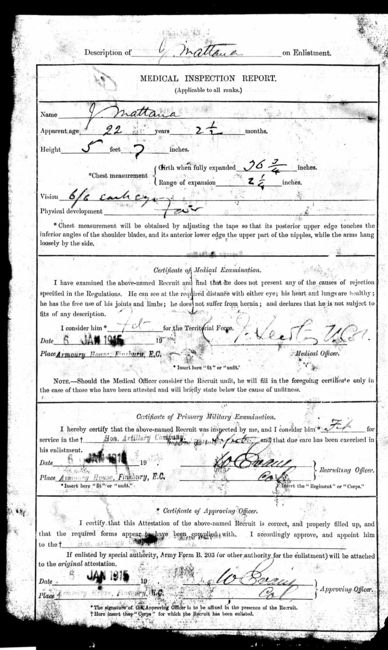 Description of J Mattana on Enlistment.
MEDICAL INSPECTION REPORT.
(Applicable to all ranks.)
Name J Mattana
Apparent age 22 years 2 1/2 months.
Height 5 feet 7 inches.
*Chest measurement { Girth when fully expanded 36 3/4 inches.
Range of expansion 2 1/4 inches.
Vision 6/6 each eye
Physical development Fair
*Chest measurement will be obtained by adjusting the tape so that its posterior upper edge touches the
inferior angles of the shoulder blades, and its anterior lower edge the upper part of the nipples, while the arms hang
loosely by the side.
Certificate of Medical Examination.
I have examined the above-named Recruit and find that he does not present any of the causes of rejection
specified in the Regulations. He can see at the required distance with either eye; his heart and lungs are healthy;
he has the free use of his joints and limbs; he does not suffer from hernia; and declares that he is not subject to
fits of any description.
I consider him * Fit for the Territorial Force.
Date 6 JAN 1915 19
Medical Officer.
Place Armoury House, Finsbury, E.C.
*Insert here "fit" or "unfit."
NOTE.—Should the Medical Officer consider the Recruit unfit, he will fill in the foregoing certificate only in
the case of those who have been attested and will briefly state below the cause of unfitness.
Certificate of Primary Military Examination.
I hereby certify that the above-named Recruit was inspected by me, and I consider him * Fit for
service in the † Hon. Artillery Company and that due care has been exercised in
his enlistment.
Date 6 JAN 1915 19
W Evans
Capt
Recruiting Officer.
Place Armoury House, Finsbury, E.C.
*Insert here "fit" or "unfit."
†Insert the "Regiment" or "Corps."
* Certificate of Approving Officer.
I certify that this Attestation of the above-named Recruit is correct, and properly filled up, and
that the required forms appear to have been complied with. I accordingly approve, and appoint him
to the †
If enlisted by special authority, Army Form B. 203 (or other authority for the enlistment) will be attached
to the original attestation.
Date 6 JAN 1915 19
W Evans
Capt
Approving Officer.
Place Armoury House, Finsbury, E.C.
*The signature of the Approving Officer is to be affixed in the presence of the Recruit.
†Here insert the "Corps" for which the Recruit has been enlisted.